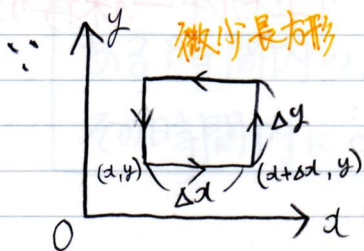 ∵
y
微少長方形
Δy
(x, y)
Δx
(x+Δx, y)
O
x